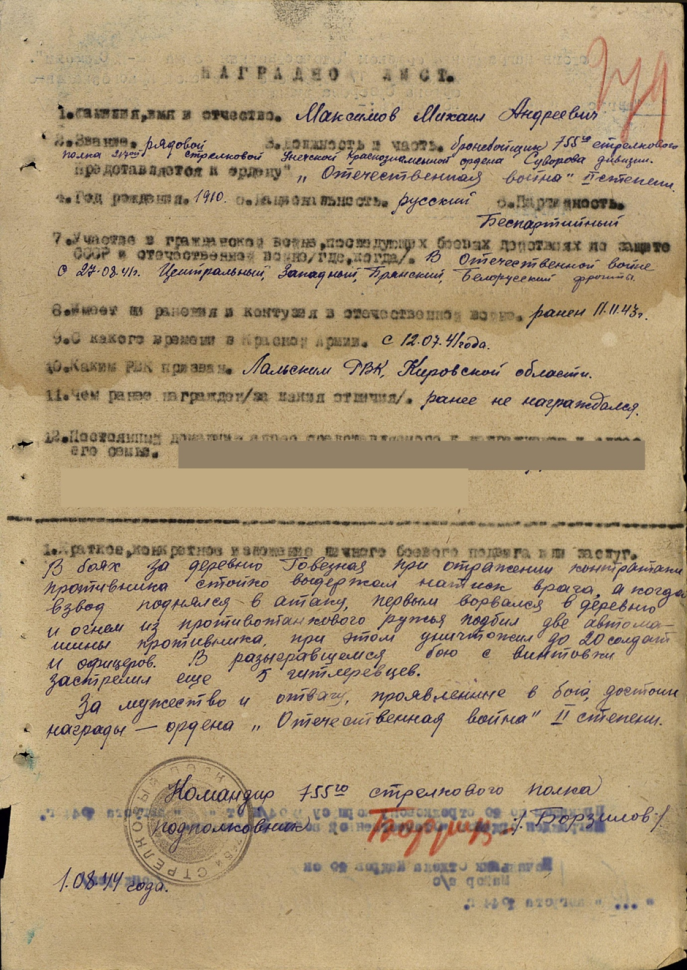 НАГРАДНОЙ ЛИСТ.
279
1. Фамилия, имя и отчество. Максимов Михаил Андреевич
2. Звание. рядовой 3. Должность и часть. бронебойщик 755го стрелкового
полка 217ой стрелковой Унечской Краснознаменной ордена Суворова дивизии.
Представляется к ордену "Отечественная война" II степени.
4. Год рождения. 1910. 5. Национальность. русский 6. Партийность.
Беспартийный
7. Участие в гражданской войне, последующих боевых действиях по защите
СССР и отечественной войне/где, когда/. В Отечественной войне
с 27.08.41г. Центральный, Западный, Брянский, Белорусский фронта.
8. Имеет ли ранения и контузия в отечественной войне. ранен 11.11.43г.
9. С какого времени в Красной Армии. с 12.07.41 года.
10. Каким РВК призван. Лальским РВК, Кировской области.
11. Чем ранее награжден/за какия отличия/. ранее не награждался.
12. Постоянный домашний адрес представляемого к
его семьи.
1. Краткое, конкретное изложение личного боевого подвига или заслуг.
В боях за деревню при отражении контратаки
противника стойко выдержал натиск врага, а когда
взвод поднялся в атаку, первым ворвался в деревню
и огнем из противотанкового ружья подбил две автома-
шины противника, при этом уничтожил до 20 солдат
и офицеров. В разыгравшемся бою с винтовки
застрелил еще 5 гитлеревцев.
За мужество и отвагу, проявленные в бою, достоин
награды — ордена "Отечественная война" II степени.
Командир 755го стрелкового полка
подполковник / Борзилов /
1.08.44 года.
СТРЕЛКОВЫЙ ПОЛК